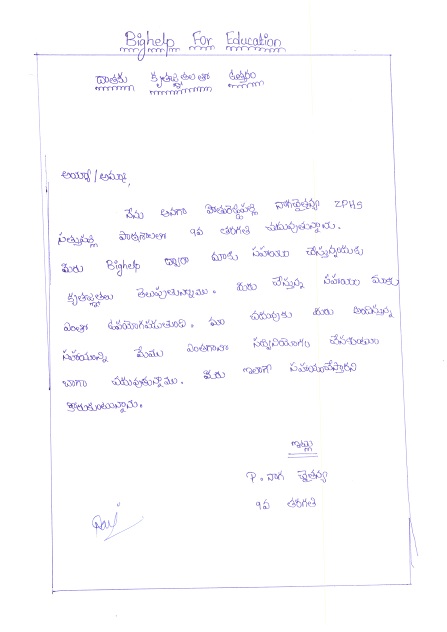 Bighelp For Education
దాతకు కృతజ్ఞతలతో ఉత్తరం
అయ్యా/అమ్మా,
నేను అనగా పాతురెడ్డిపల్లి నాగచైతన్య ZPHS
సత్తుపల్లి పాఠశాలలో 9వ తరగతి చదువుతున్నాను.
మీరు Bighelp ద్వారా మాకు సహాయం చేస్తున్నందుకు
కృతజ్ఞతలు తెలుపుతున్నాము. మీరు చేస్తున్న సహాయం మాకు
ఎంతో ఉపయోగపడుతుంది. మా చదువుకు మీరు అందిస్తున్న
సహాయాన్ని మేము ఎంతగానో సద్వినియోగం చేసుకుంటూ
బాగా చదువుకున్నాము. మీరు ఇలాగే సహాయంచేస్తారని
కోరుకుంటున్నాను.
ఇట్లు
P. నాగ చైతన్య
9వ తరగతి